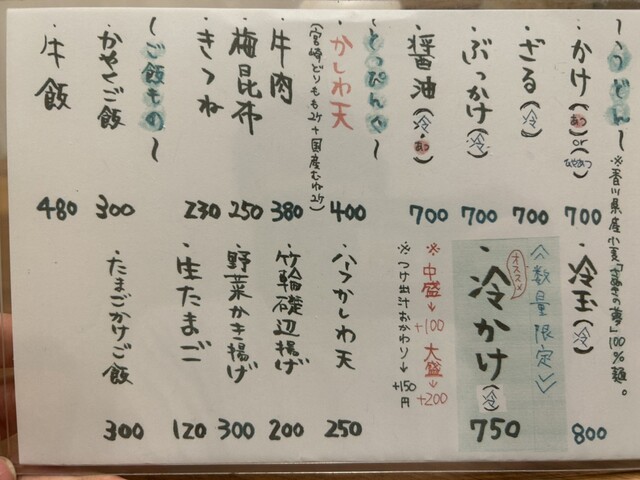 〜うどん〜
※香川県産小麦「さぬきの夢」100%麺。
・かけ(あつ)or(ひやあつ) 700
・ざる(冷) 700
・ぶっかけ(冷) 700
・醤油(冷・あつ) 700
・冷玉(冷) 800
≪数量限定≫
オススメ
・冷かけ(冷) 750
※中盛→+100 大盛→+200
※つけ出汁おかわり→+150円
〜とっぴんぐ〜
・かしわ天 400
(宮崎どりもも2ケ+国産むね2ケ)
・牛肉 380
・梅昆布 250
・きつね 230
・ハーフかしわ天 250
・竹輪磯辺揚げ 200
・野菜かき揚げ 300
・生たまご 120
〜ご飯もの〜
・かやくご飯 300
・牛飯 480
・たまごかけご飯 300